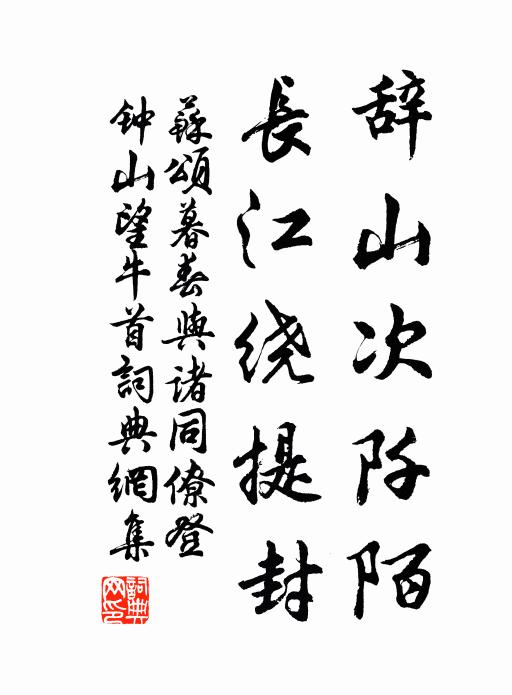 辞山次阡陌
長江绕提封
蘇頌暮春與诸同僚登
钟山望牛首詞典網集
詞典網印